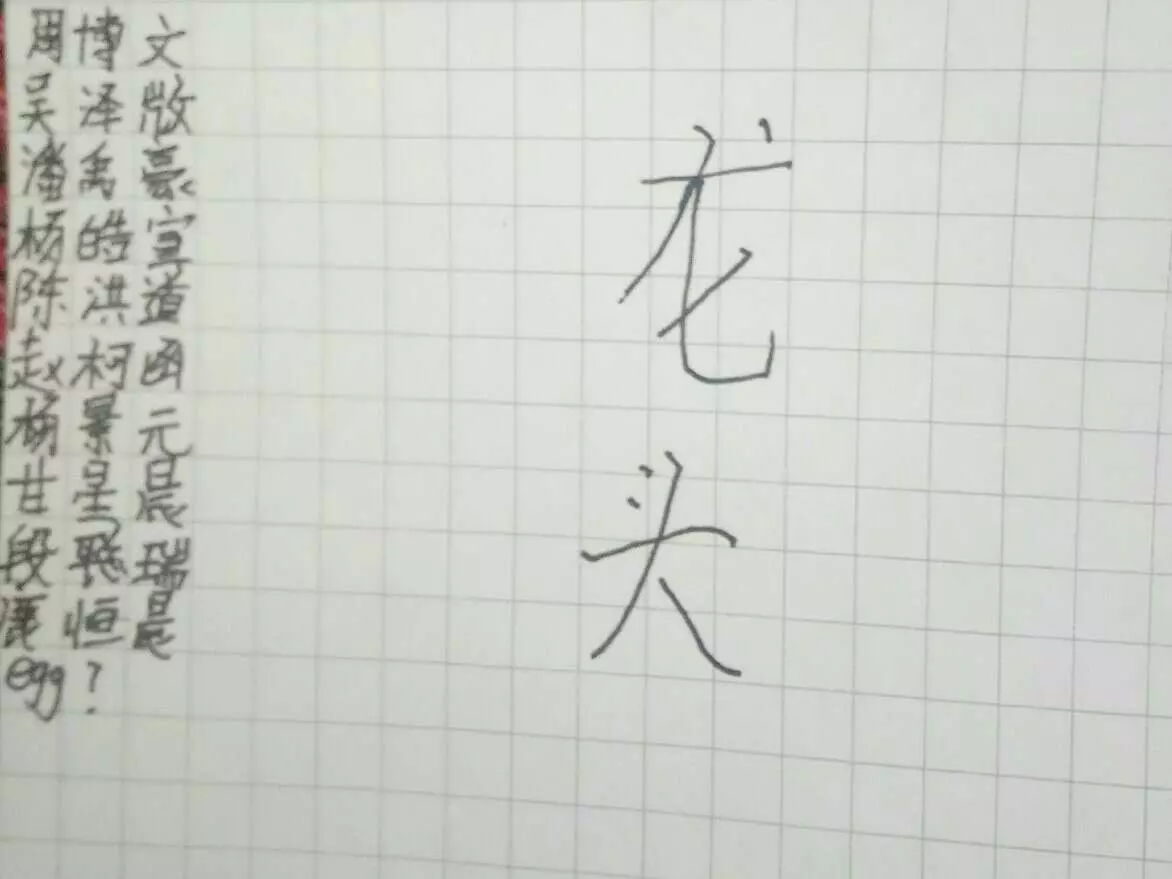 周博文
吴泽
潘禹豪
杨皓宣
陈洪道
赵柯函
杨景元
甘星晨
段瑞
恒晨
egg?
龙
头